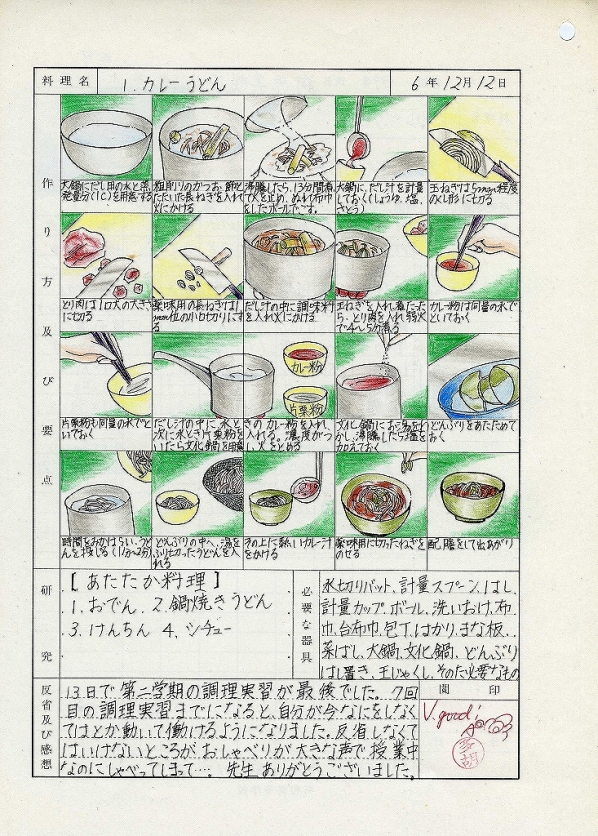 料理名
1. カレーうどん
6年12月12日
作り方及び要点
大鍋にだし用の水と蒸
発量分(1C)を用意する
粗削りのかつお節と
たたいた長ねぎを入れ
火にかける
沸騰したら、13分間煮
て火を止め、ぬれ布巾
をしたボールでこす。
大鍋に、だし汁を計量
しておく(しょうゆ、塩、
さとう)
玉ねぎは5mm程度
のくし形に切る
とり肉は1口大の大きさ
に切る
薬味用の長ねぎは1
mm位の小口切りにす
る
だし汁の中に調味料
を入れ火にかける
玉ねぎを入れ、煮たった
ら、とり肉を入れ弱火
で4〜5分煮る
カレー粉は同量の水で
といておく
カレー粉
片栗粉
片栗粉も同量の水でと
いておく
だし汁の中に、水と
きのカレー粉を入れ、
次に水とき片栗粉を
入れる。濃度がつ
いたら文化鍋を用意
し、火をとめる
文化鍋にお湯をわ
かし、沸騰したら塩を
加えておく
どんぶりをあたためて
おく
時間をみはからい、うど
んを投じる(1分〜2分)
どんぶりの中へ、湯を
ふり切ったうどんを入
れる
その上に熱いカレー汁
をかける
薬味用に切ったねぎを
のせる
配膳をして出来あがり
研究
[あたたか料理]
1. おでん 2. 鍋焼きうどん
3. けんちん 4. シチュー
必要な器具
水切りバット、計量スプーン、はし、
計量カップ、ボール、洗いおけ、布
巾、台布巾、包丁、はかり、まな板、
菜ばし、大鍋、文化鍋、どんぶり
はし置き、玉じゃくし、そのた必要なもの
反省及び感想
13日で第二学期の調理実習が最後でした。7回
目の調理実習までになると、自分が今なにをしなく
てはとか動いて働けるようになりました。反省しなくて
はいけないところがおしゃべりが大きな声で授業中
なのにしゃべってしまって…。先生ありがとうございました。
閲印
V. good!